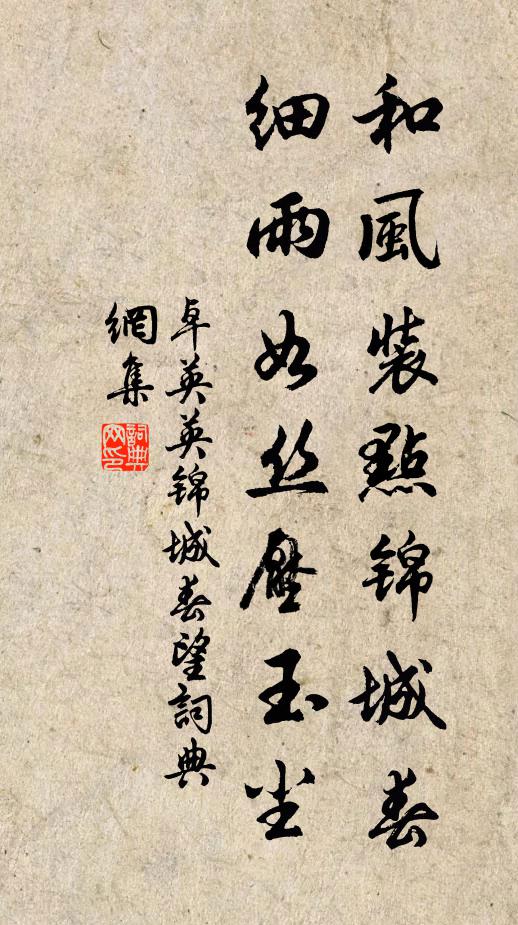 和風裝點錦城春
細雨如丝壓玉尘
卓英英锦城春望詞典
網集
詞典网印